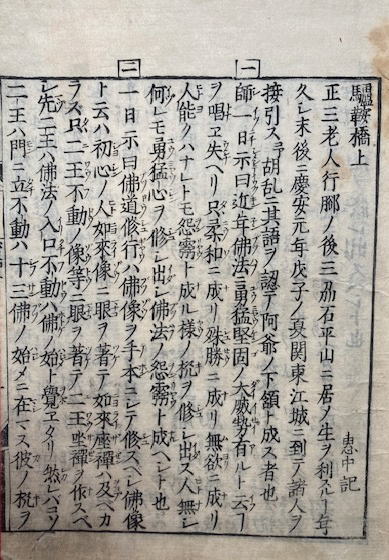 驢鞍橋上
恵中記
正三老人行脚ノ後三刕石平山ニ居ノ生ヲ利スル年
久シ末後ニ慶安元年戊子ノ夏関東江城ニ到テ諸人ヲ
接引ス予胡乱ニ其語ヲ認テ阿爺ノ下頷ト成ス者也
一
師一日示曰近年佛法ニ勇猛堅固ノ大威勢有ルト云ヿ
ヲ唱ヱ失ヘリ只柔和ニ成リ殊勝ニ成リ無欲ニ成リ
人能クハナレトモ怨霊ト成ル様ノ機ヲ修シ出ス人無シ
何レモ勇猛心ヲ修シ出シ佛法ノ怨霊ト成ヘシト也
二
一日示曰佛道修行ハ佛像ヲ手本ニシテ修スヘシ佛像
ト云ハ初心ノ人如來像ニ眼ヲ著テ如來坐禪ハ及ヘカ
ラス只二王不動ノ像等ニ眼ヲ著テ二王坐禪ヲ作スヘ
シ先二王ハ佛法ノ入口不動ハ佛ノ始ト覺ヱタリ然レハコソ
二王ハ門ニ立不動ハ十三佛ノ始メニ在マス彼ノ機ヲ